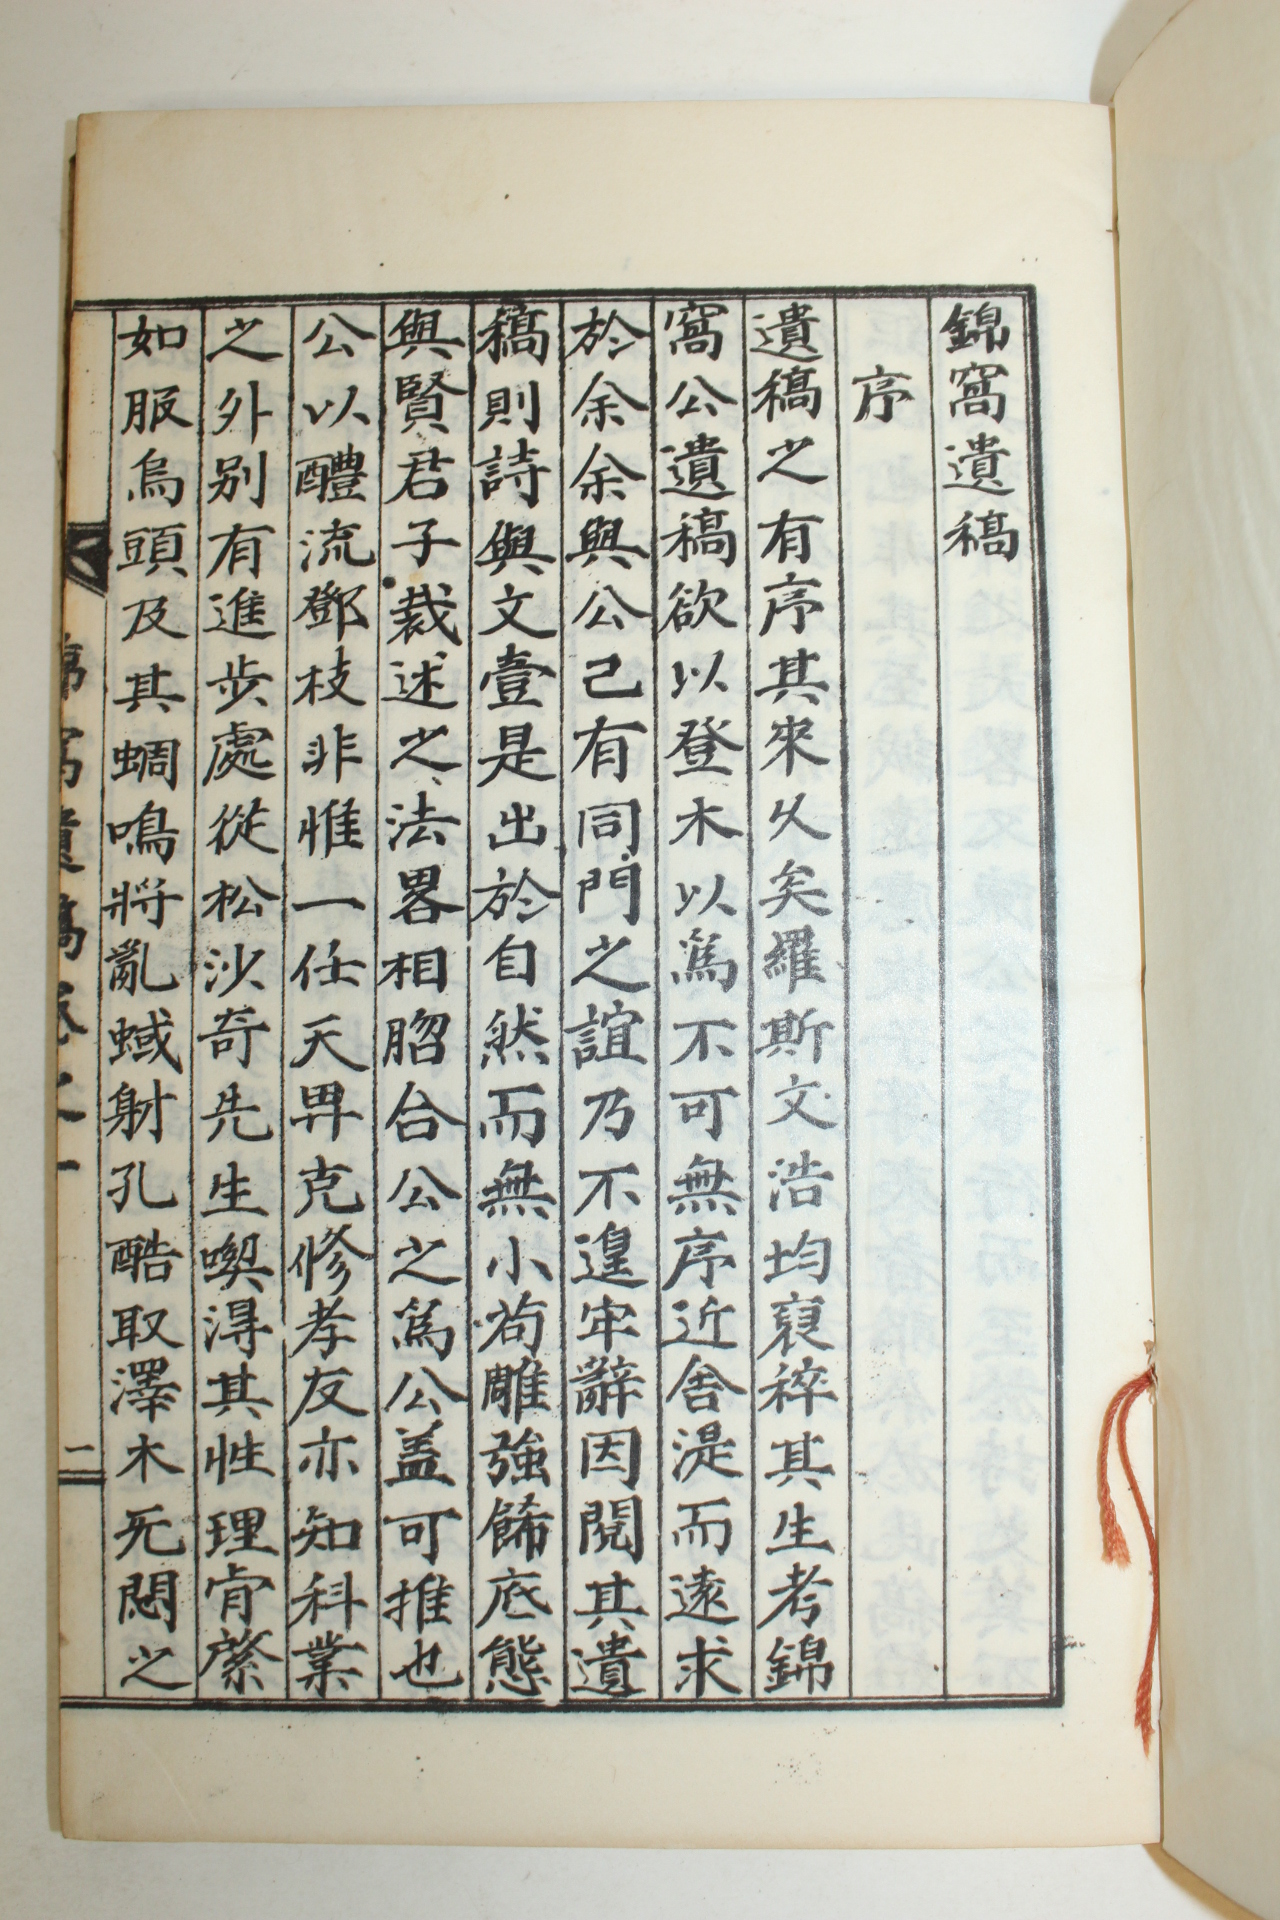 錦窩遺稿
序
遺稿之有序其來久矣羅斯文浩均裒稡其生考錦
窩公遺稿欲以登木以爲不可無序近舍湜而遠求
於余余與公己有同門之誼乃不遑牢辭因閱其遺
稿則詩與文壹是出於自然而無小苟雕強餙底態
與賢君子裁述之法畧相脗合公之爲公盖可推也
公以醴流鄧枝非惟一任天畀克修孝友亦知科業
之外別有進步處從松沙奇先生喫淂其性理肯綮
如服烏頭及其蜩鳴將亂蜮射孔酷取澤木旡悶之
錦窩遺稿卷之一
一